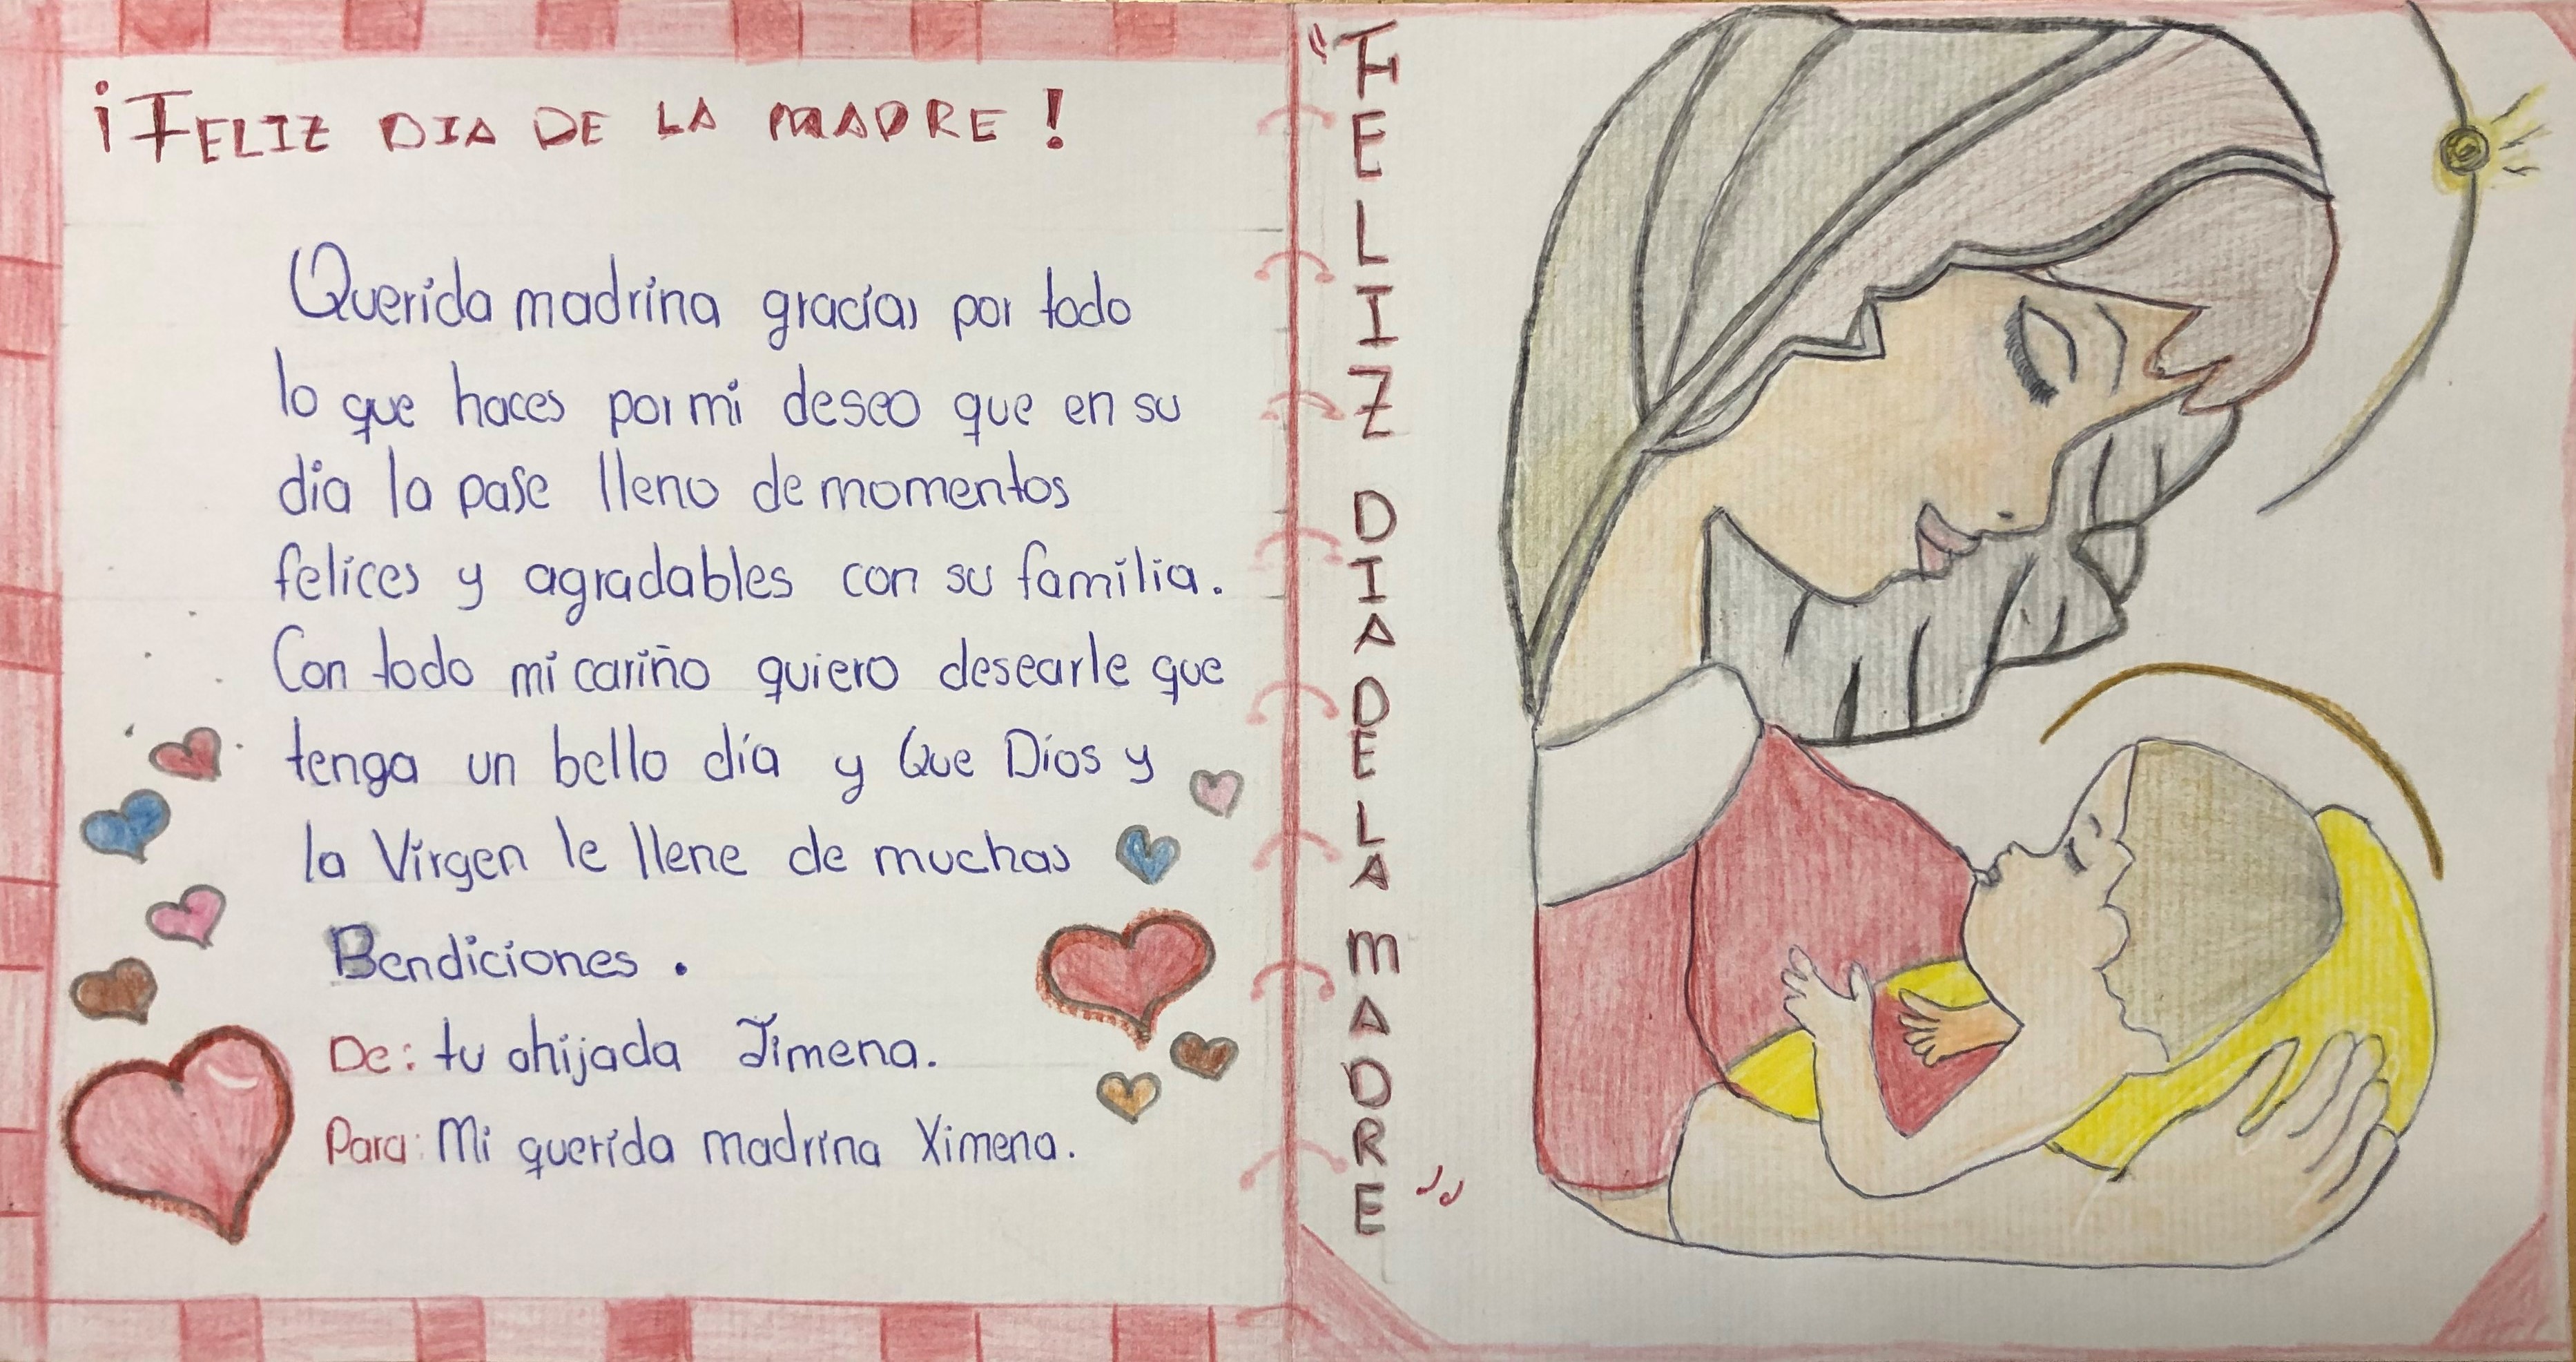 ¡FELIZ DIA DE LA MADRE!
Querida madrina gracias por todo
lo que haces por mi deseo que en su
dia la pase lleno de momentos
felices y agradables con su familia.
Con todo mi cariño quiero desearle que
tenga un bello día y Que Dios y
la Virgen le llene de muchas
Bendiciones.
De: tu ahijada Jimena.
Para: Mi querida madrina Ximena.
"FELIZ DIA DE LA MADRE"